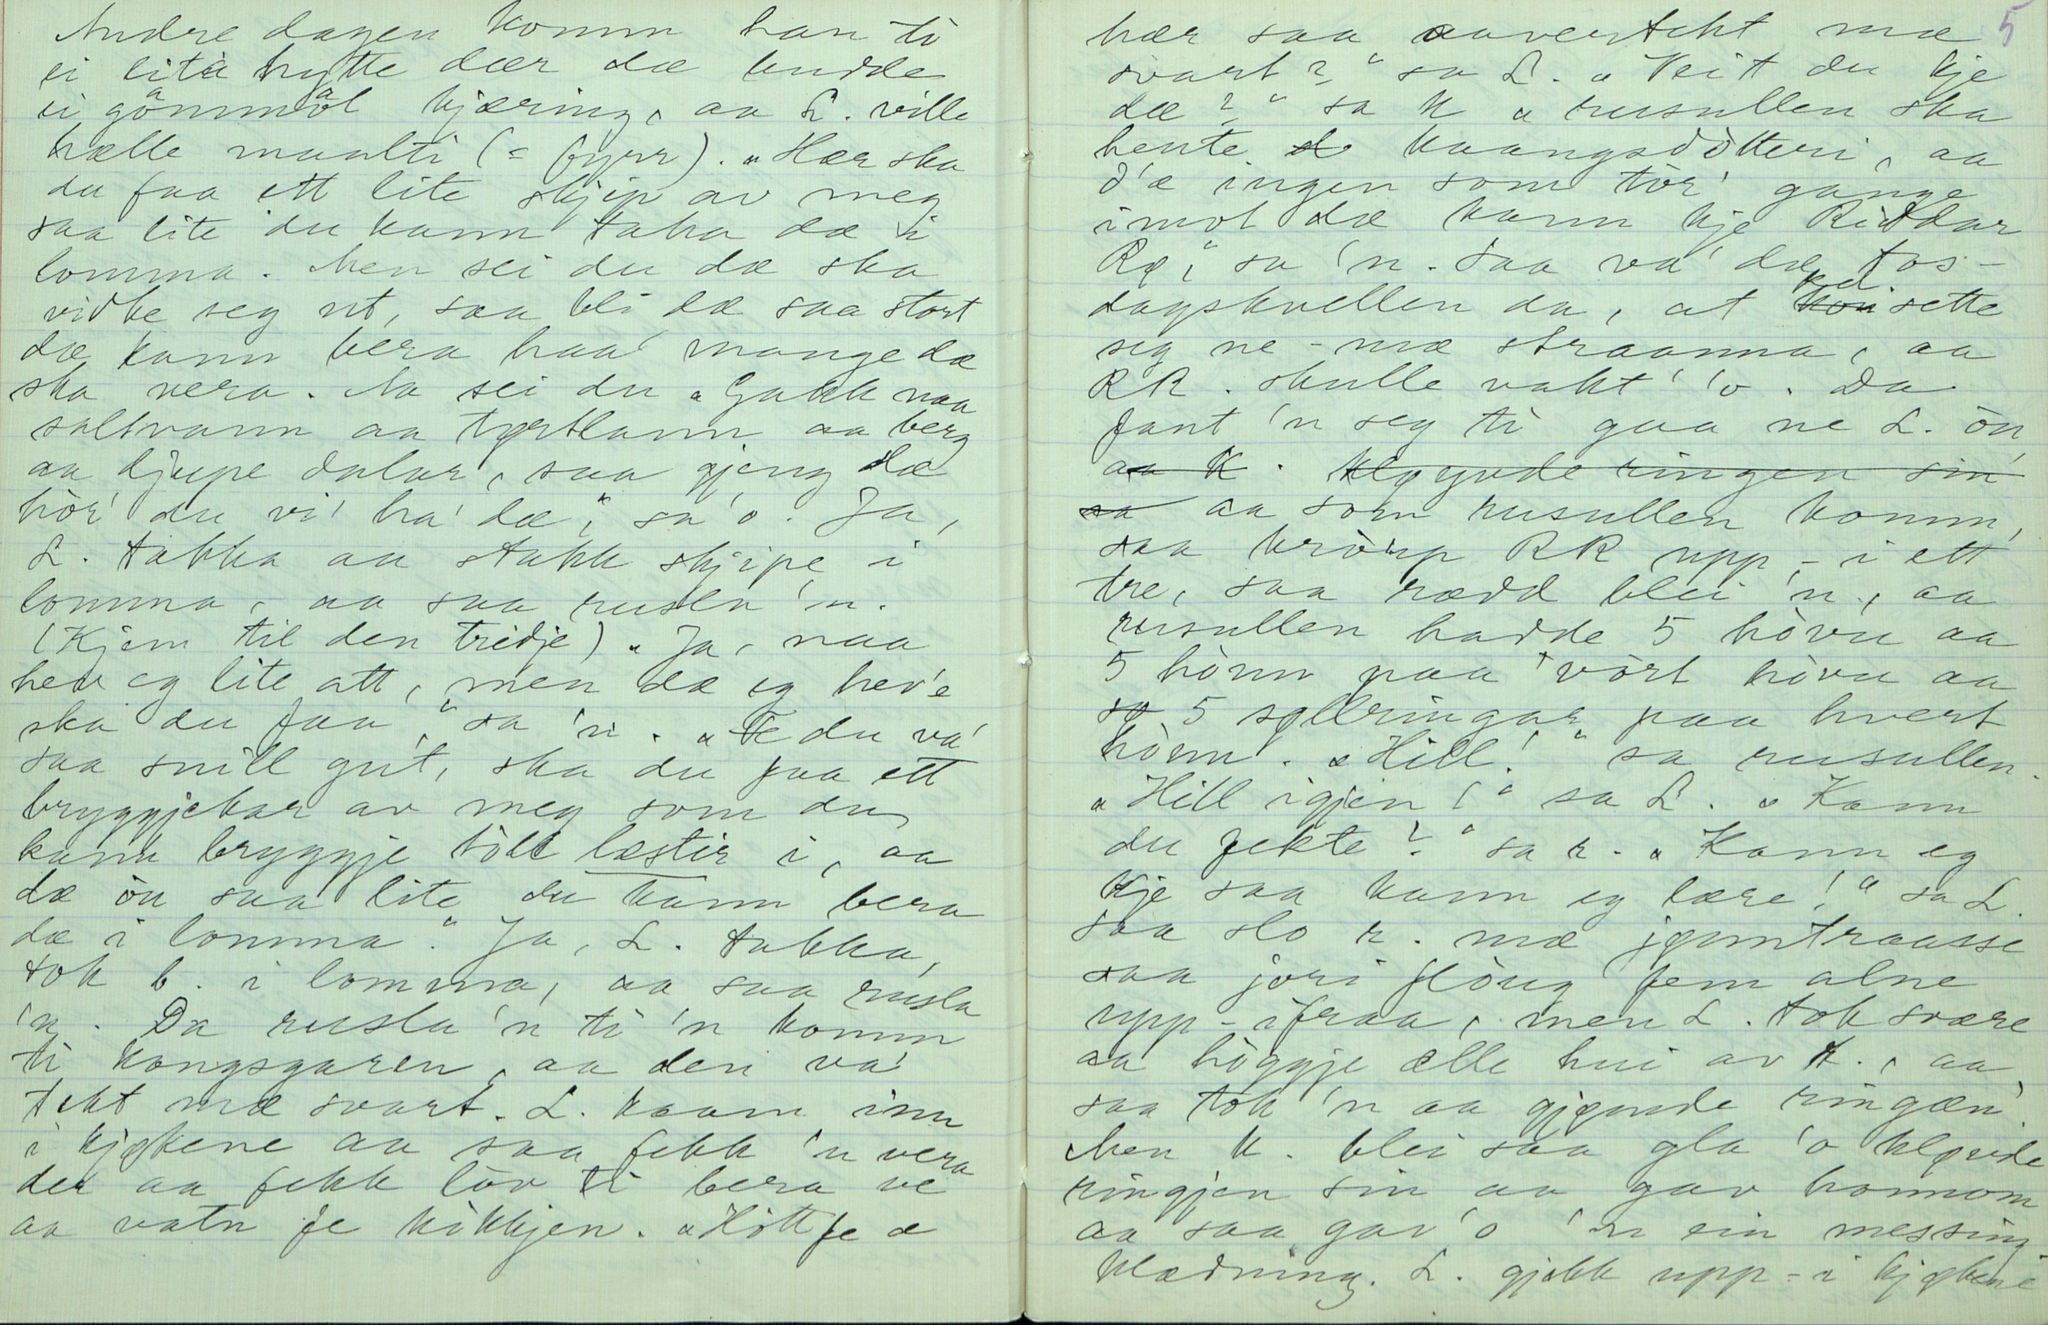 Andre dagen komm han ti
ei lita hytte dær dæ budde
ei gåmmål kjæring, aa L. ville
hælle maalti (= fyrr). „Hær ska
du faa ett lite skjip av meg
saa lite du kann taka dæ i
lomma. Men sei du dæ ska
vidke seg ut, saa bli dæ saa stort
dæ kann bera haa' mange dæ
ska vera. Na sei du „Gakk naa
saltvann aa tørtlann aa berg
aa djupe dalar, saa gjeng dæ
hòr' du vi' ha' dæ," sa'o. Ja,
L. takka aa stakk skjipe i
lomma, aa saa rusla'n.
(Kjem til den tridje). „Ja, naa
hev eg lite att, men dæ eg hev'e
ska du faa," sa'n. „E du va'
saa snill gut, ska du faa ett
bryggjekar av meg som du
kann bryggje tòll læstir i, aa
dæ òu saa lite du kann bera
dæ i lomma." Ja, L. takka,
tok b. i lomma, aa saa rusla
'n. Da rusla'n ti'n komm
ti kongsgaren, aa den va'
tekt mæ svart. L. kaam inn
i kjøkene aa saa fekk 'n vera
der aa fekk lòv ti bera ve
aa vatn fe kòkkjen. „Hòtt fe æ
5
hær saa aavertekt mæ
svart?" sa L. „Veit du kje
dæ?" sa K „rusullen ska
hente kaangsdòtteri, aa
d'æ ingen som tòr' gånge
imot dæ kann kje Riddar
Rø," sa 'n. Saa va' dæ tos-
dagskvellen da, at kd. sette
seg ne-mæ straanna, aa
RR. skulle vakt' 'o. Da
fant 'n seg ti gaa ne L. òu,
aa K. kløyvde ringen sin
sa aa som rusullen komm,
saa kròup RR upp-i ett
tre, saa rædd blei 'n, aa
rusullen hadde 5 hòvu aa
5 hònn paa vòrt hòvu aa
so 5 søllringar paa hvert
hònn. „Hill!" sa rusullen.
„Hill igjen!" sa L. „Kann
du fekte?" sa r. „Kann eg
kje saa kann eg lære!" sa L.
Saa slo r. mæ jønntraasse
saa jori flòug fem alne
upp-ifraa, men L. tok svære
aa hòggje ælle hui av r., aa
saa tok 'n aa gjømde ringæn
Men K. blei saa gla 'o kløvde
ringjen sin aa gav honnom
aa saa gav'o 'n ein messing
klædning. L. gjekk upp-i kjøkene